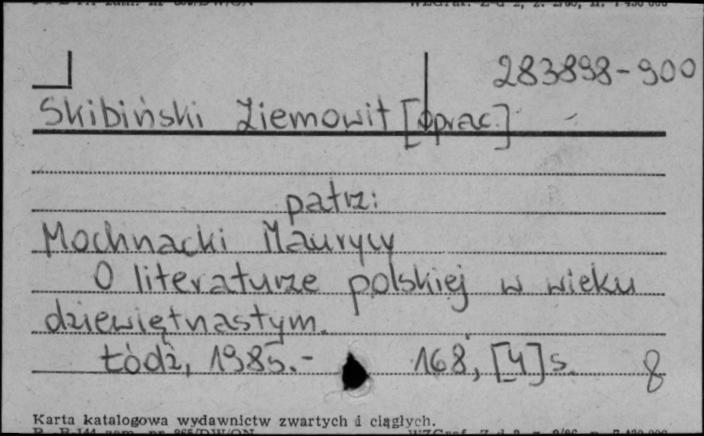 283898-900
Skibiński Ziemowit [oprac.]
patrz:
Mochnacki Maurycy
O literaturze polskiej w wieku
dziewiętnastym.
Łódź, 1985.- 168, [4] s. 8
Karta katalogowa wydawnictw zwartych i ciągłych.